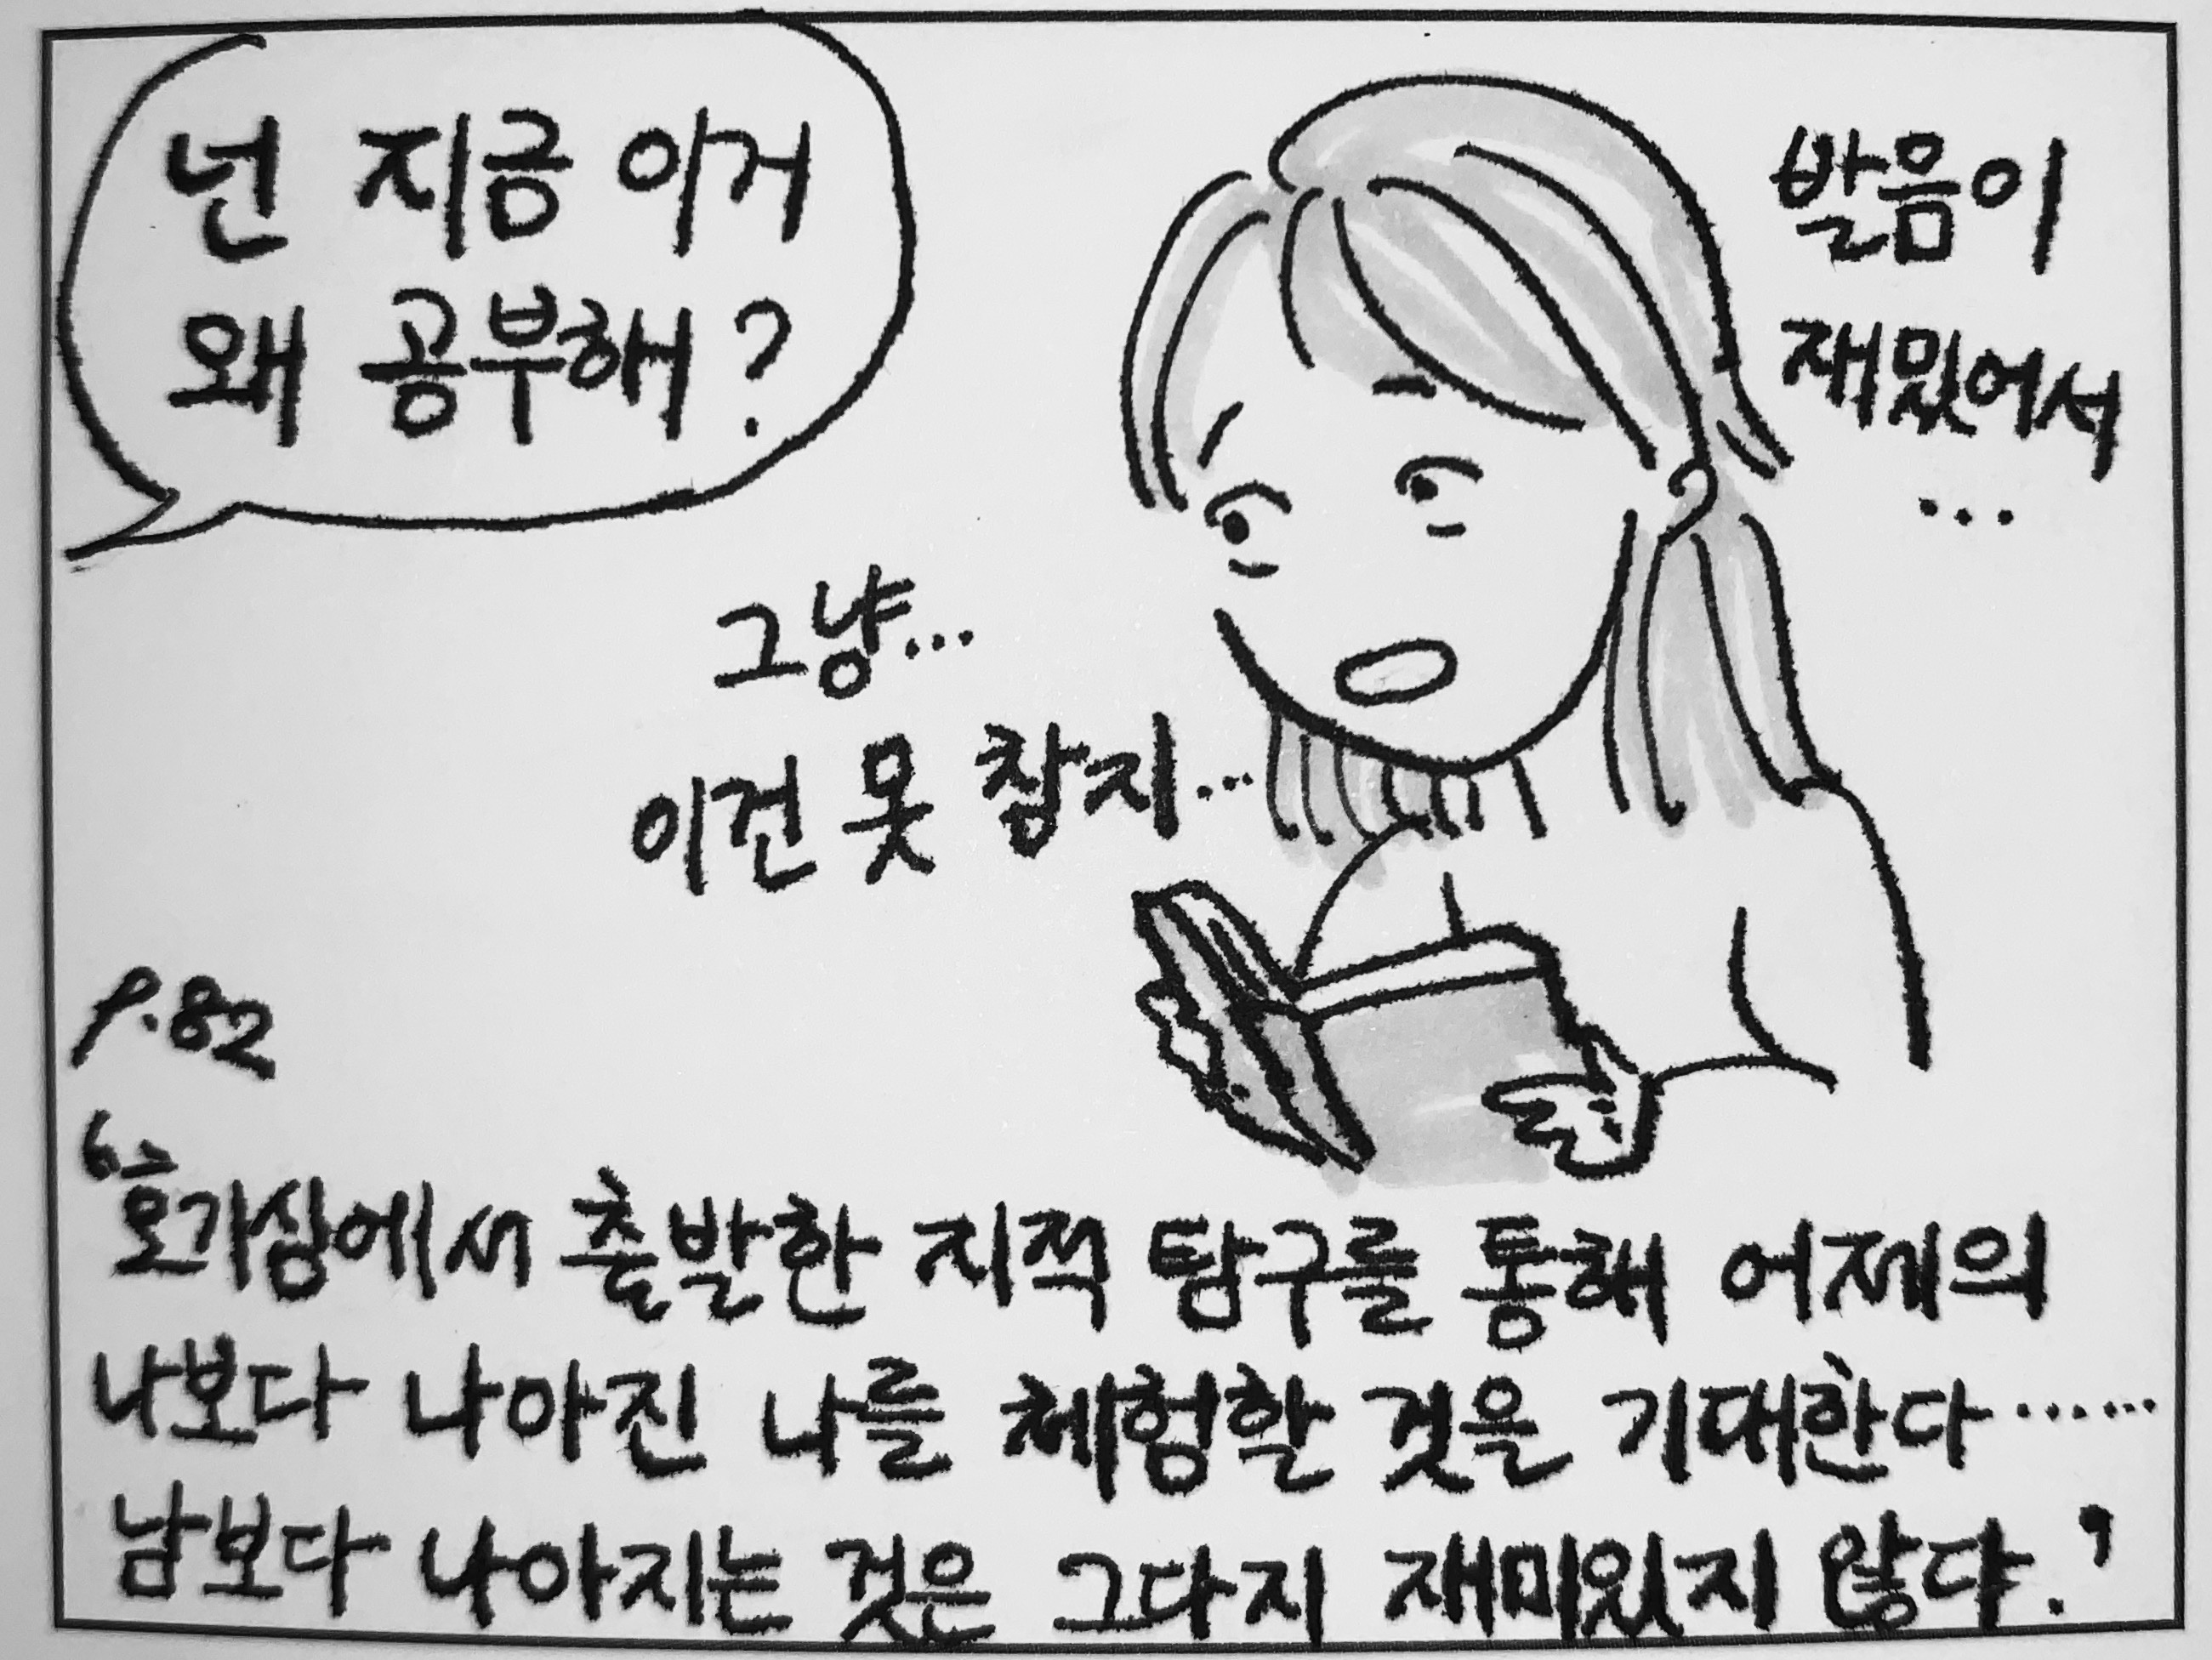 넌 지금 이거
왜 공부해?
발음이
재밌어서
...
그냥...
이건 못 참지...
P.82
'호기심에서 출발한 지적 탐구를 통해 어제의
나보다 나아진 나를 체험할 것을 기대한다……
남보다 나아지는 것은 그다지 재미있지 않다.'